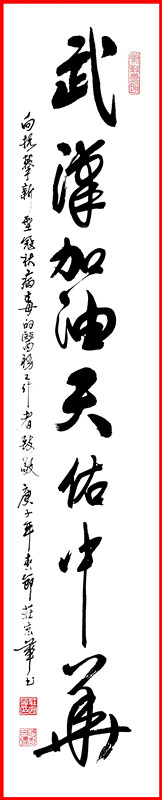 武漢加油天佑中華
向抗擊新型冠狀病毒的醫務工作者致敬 庚子年春節